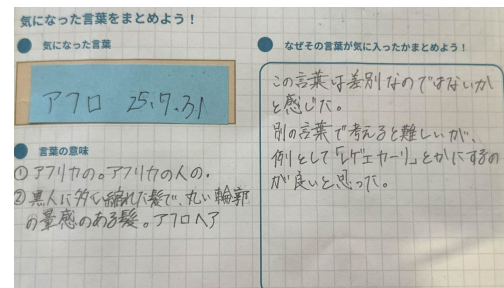 気になった言葉をまとめよう！
気になった言葉
アフロ 25.7.31
言葉の意味
①アフリカの。アフリカの人の.
②黒人に多い縮れた髪で、丸い輪郭
の量感のある髪。アフロヘア
なぜその言葉が気に入ったかまとめよう！
この言葉は差別なのではないか
と感じた。
別の言葉で考えると難しいが、
例として「レゲエカーリ」とかにするの
が良いと思った。